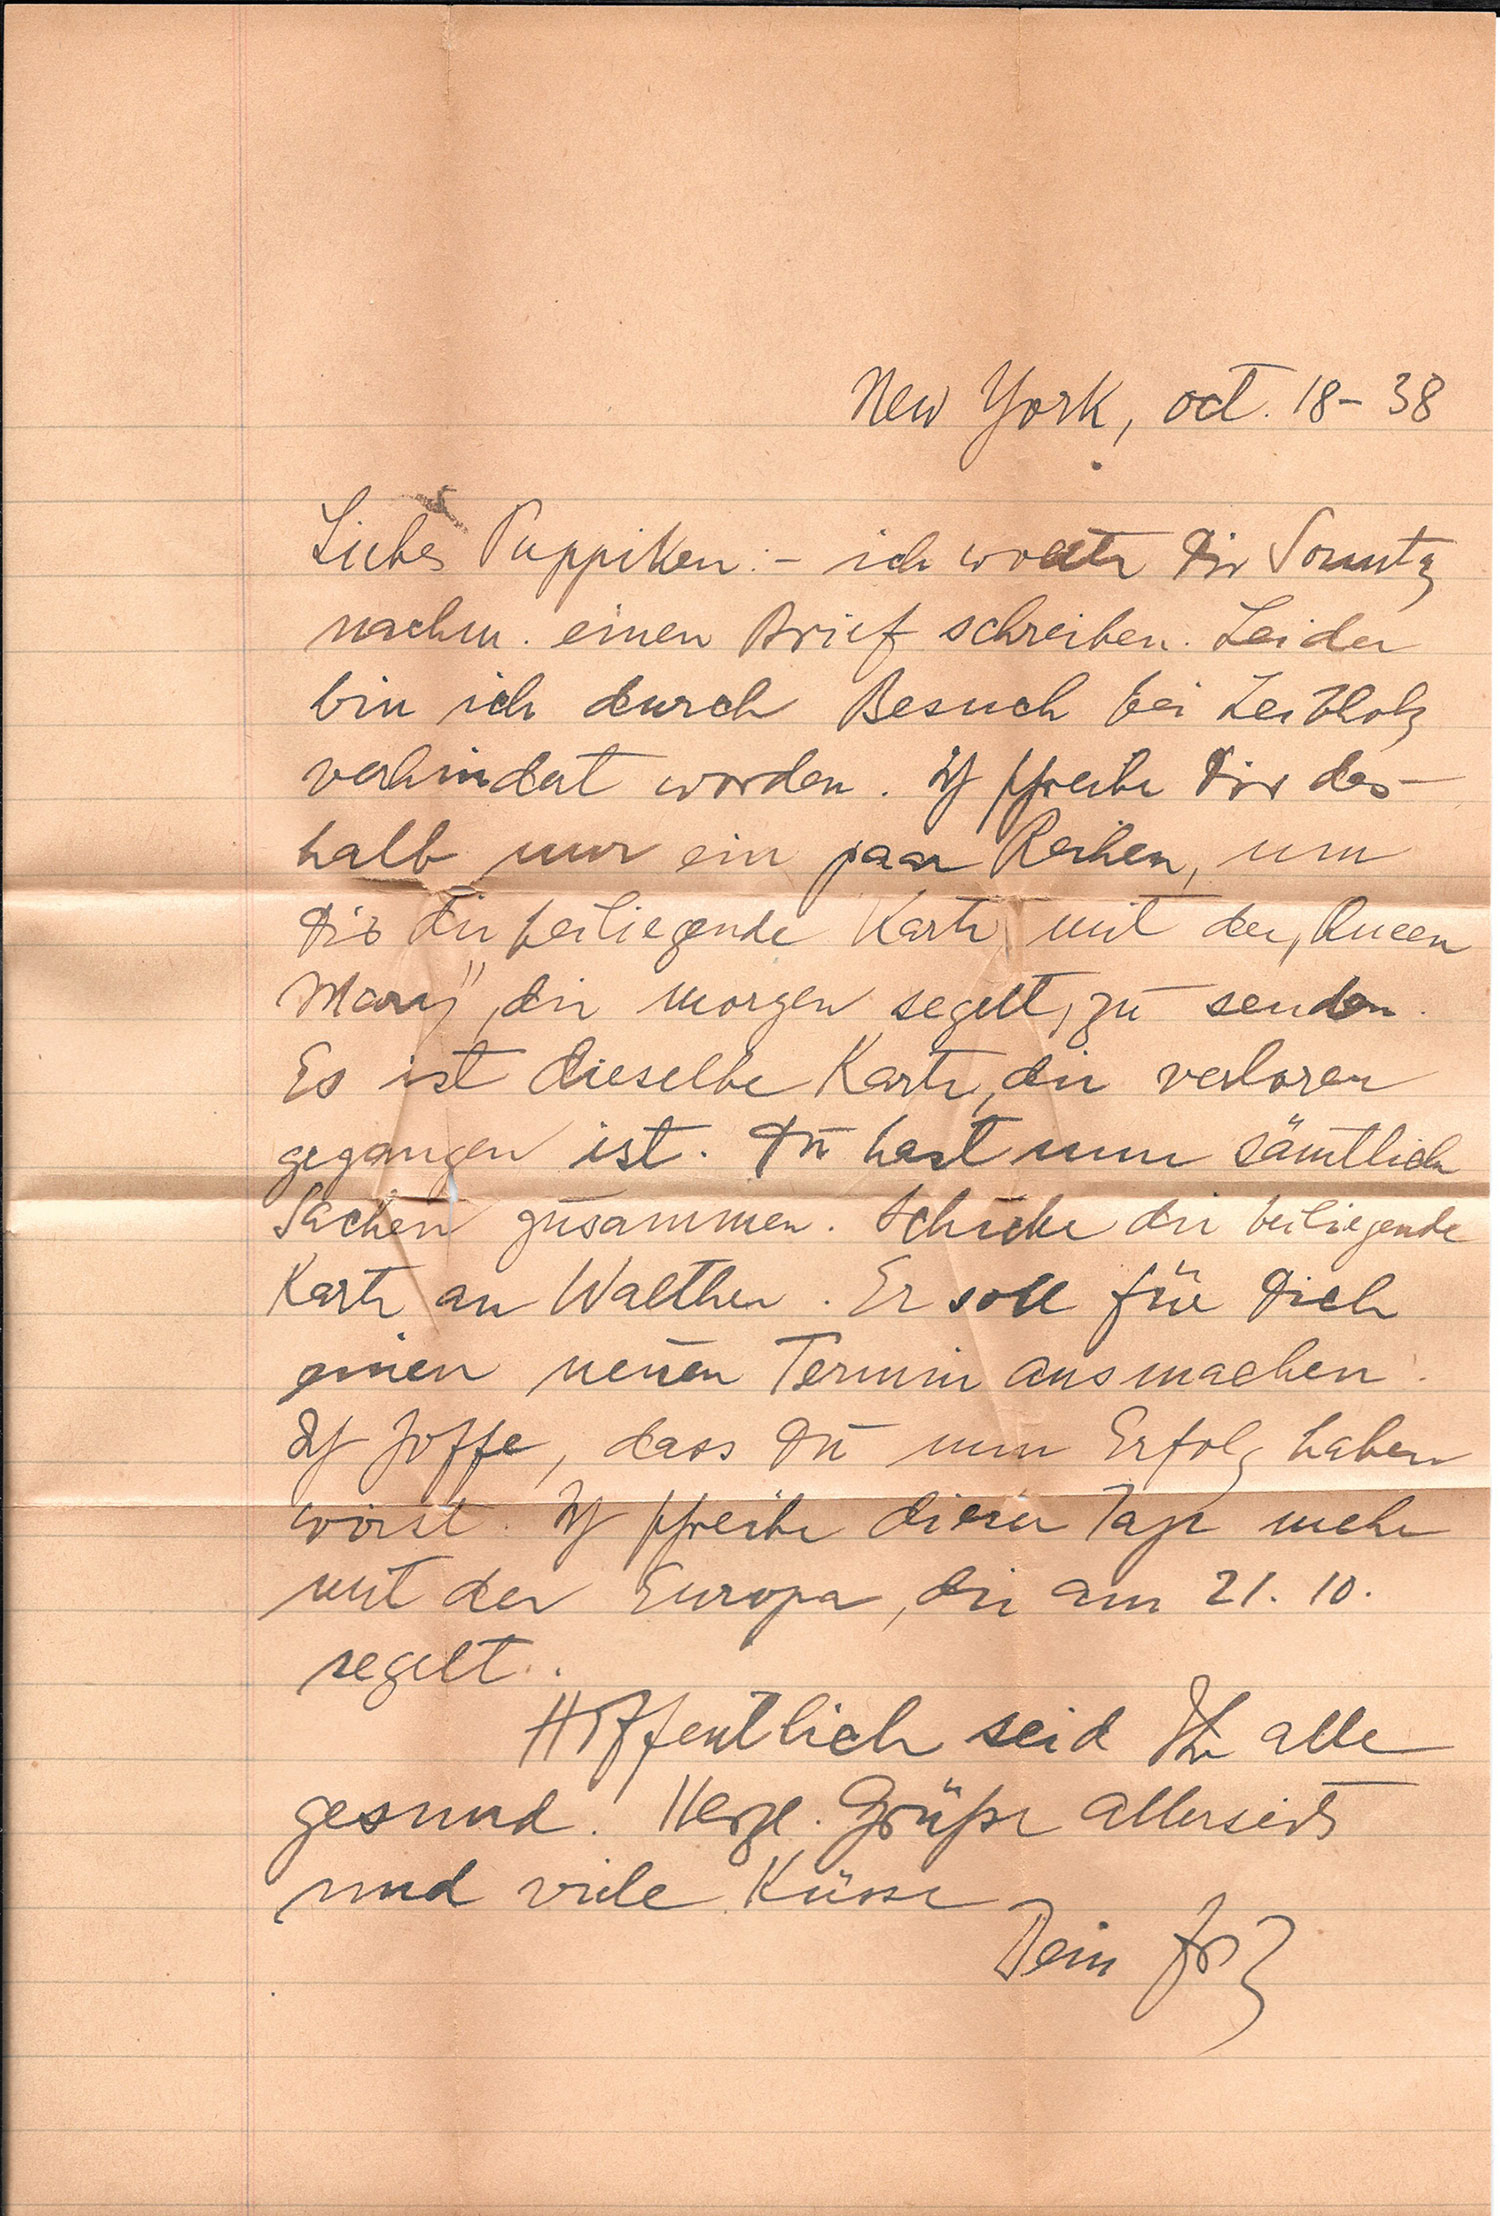 New York, oct. 18 - 38
Liebes Puppiken: - ich wollte Dir Sonntg
nachm. einen Brief schreiben. Leider
bin ich durch Besuch bei Leibholz
verhindert worden. Ich schreibe Dir des-
halb nur ein paar Reihen, um
Dir die beiliegende Karte mit der „Queen
Mary", die morgen segelt, zu senden.
Es ist dieselbe Karte, die verloren
gegangen ist. Du hast nun sämtliche
Sachen zusammen. Schicke die beiliegende
Karte an Walther. Er soll für Dich
einen neuen Termin ausmachen.
Ich hoffe, dass Du nun Erfolg haben
wirst. Ich schreibe dieser Tage mehr
mit der Europa, die am 21. 10.
segelt.
Hoffentlich seid Ihr alle
gesund. Herzl. Grüße allerseits
und viele Küsse
Dein